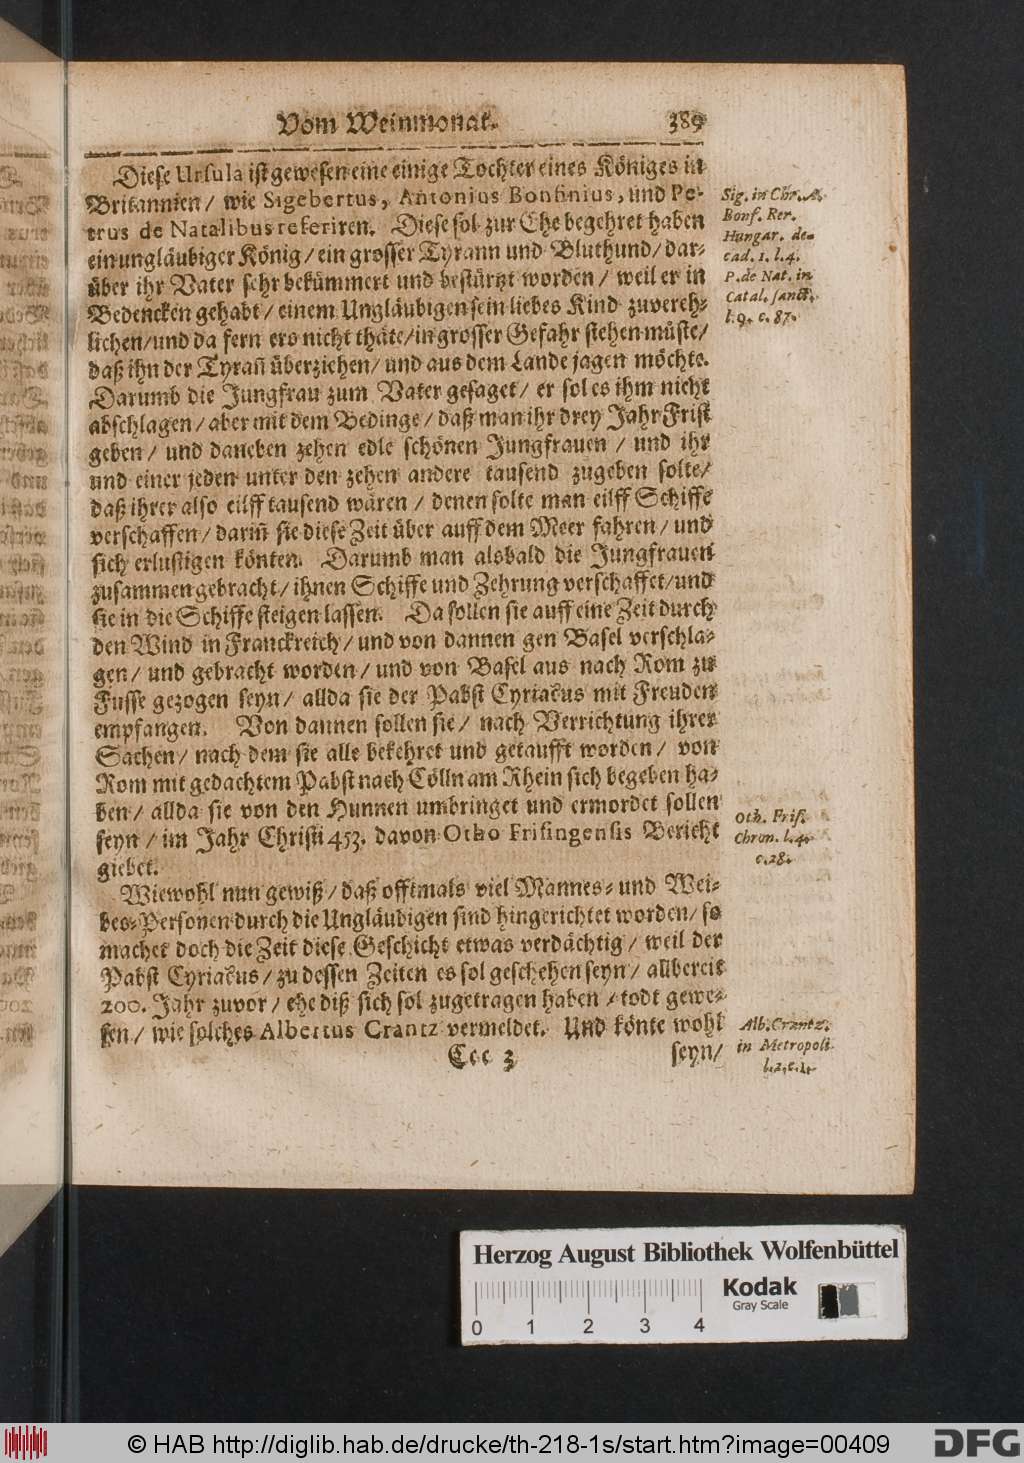 Vom Weinmonat. 389
Diese Ursula ist gewesen eine einige Tochter eines Königes in
Britannien / wie Sigebertus, Antonius Bonfinius, und Pe-
trus de Natalibus referiren. Diese sol zur Ehe begehret haben
ein ungläubiger König / ein grosser Tyrann und Bluthund / dar-
über ihr Vater sehr bekümmert und bestürtzt worden / weil er in
Bedencken gehabt / einem Ungläubigen sein liebes Kind zuvereh-
lichen / und da fern ers nicht thäte / in grosser Gefahr stehen müste /
daß ihn der Tyrañ überziehen / und aus dem Lande jagen möchte.
Darumb die Jungfrau zum Vater gesaget / er sol es ihm nicht
abschlagen / aber mit dem Bedinge / daß man ihr drey Jahr Frist
geben / und daneben zehen edle schönen Jungfrauen / und ihr
und einer jeden unter den zehen andere tausend zugeben solte /
daß ihrer also eilff tausend wären / denen solte man eilff Schiffe
verschaffen / dariñ sie diese Zeit über auff dem Meer fahren / und
sich erlustigen könten. Darumb man alsbald die Jungfrauen
zusammen gebracht / ihnen Schiffe und Zehrung verschaffet / und
sie in die Schiffe steigen lassen. Da sollen sie auff eine Zeit durch
den Wind in Franckreich / und von dannen gen Basel verschla-
gen / und gebracht worden / und von Basel aus nach Rom zu
Fusse gezogen seyn / allda sie der Pabst Cyriacus mit Freuden
empfangen. Von dannen sollen sie / nach Verrichtung ihrer
Sachen / nach dem sie alle bekehret und getaufft worden / von
Rom mit gedachtem Pabst nach Cölln am Rhein sich begeben ha-
ben / allda sie von den Hunnen umbringet und ermordet sollen
seyn / im Jahr Christi 453. davon Otho Frisingensis Bericht
giebet.
Wiewohl nun gewiß / daß offtmals viel Mannes- und Wei-
bes-Personen durch die Ungläubigen sind hingerichtet worden / so
machet doch die Zeit diese Geschicht etwas verdächtig / weil der
Pabst Cyriacus / zu dessen Zeiten es sol geschehen seyn / allbereit
200. Jahr zuvor / ehe diß sich sol zugetragen haben / todt gewe-
sen / wie solches Albertus Crantz vermeldet. Und könte wohl
Ccc 3 seyn /
Sig. in Chr. A.
Bonf. Rer.
Hungar. de-
cad. 1. l. 4.
P. de Nat. in
Catal. sanct.
l. 9. c. 87.
Oth. Fris.
Chron. l. 4.
c. 28.
Alb. Crantz.
in Metropoli.
l. 2. c. 1.
Herzog August Bibliothek Wolfenbüttel
Kodak
Gray Scale
0 1 2 3 4
© HAB http://diglib.hab.de/drucke/th-218-1s/start.htm?image=00409
DFG